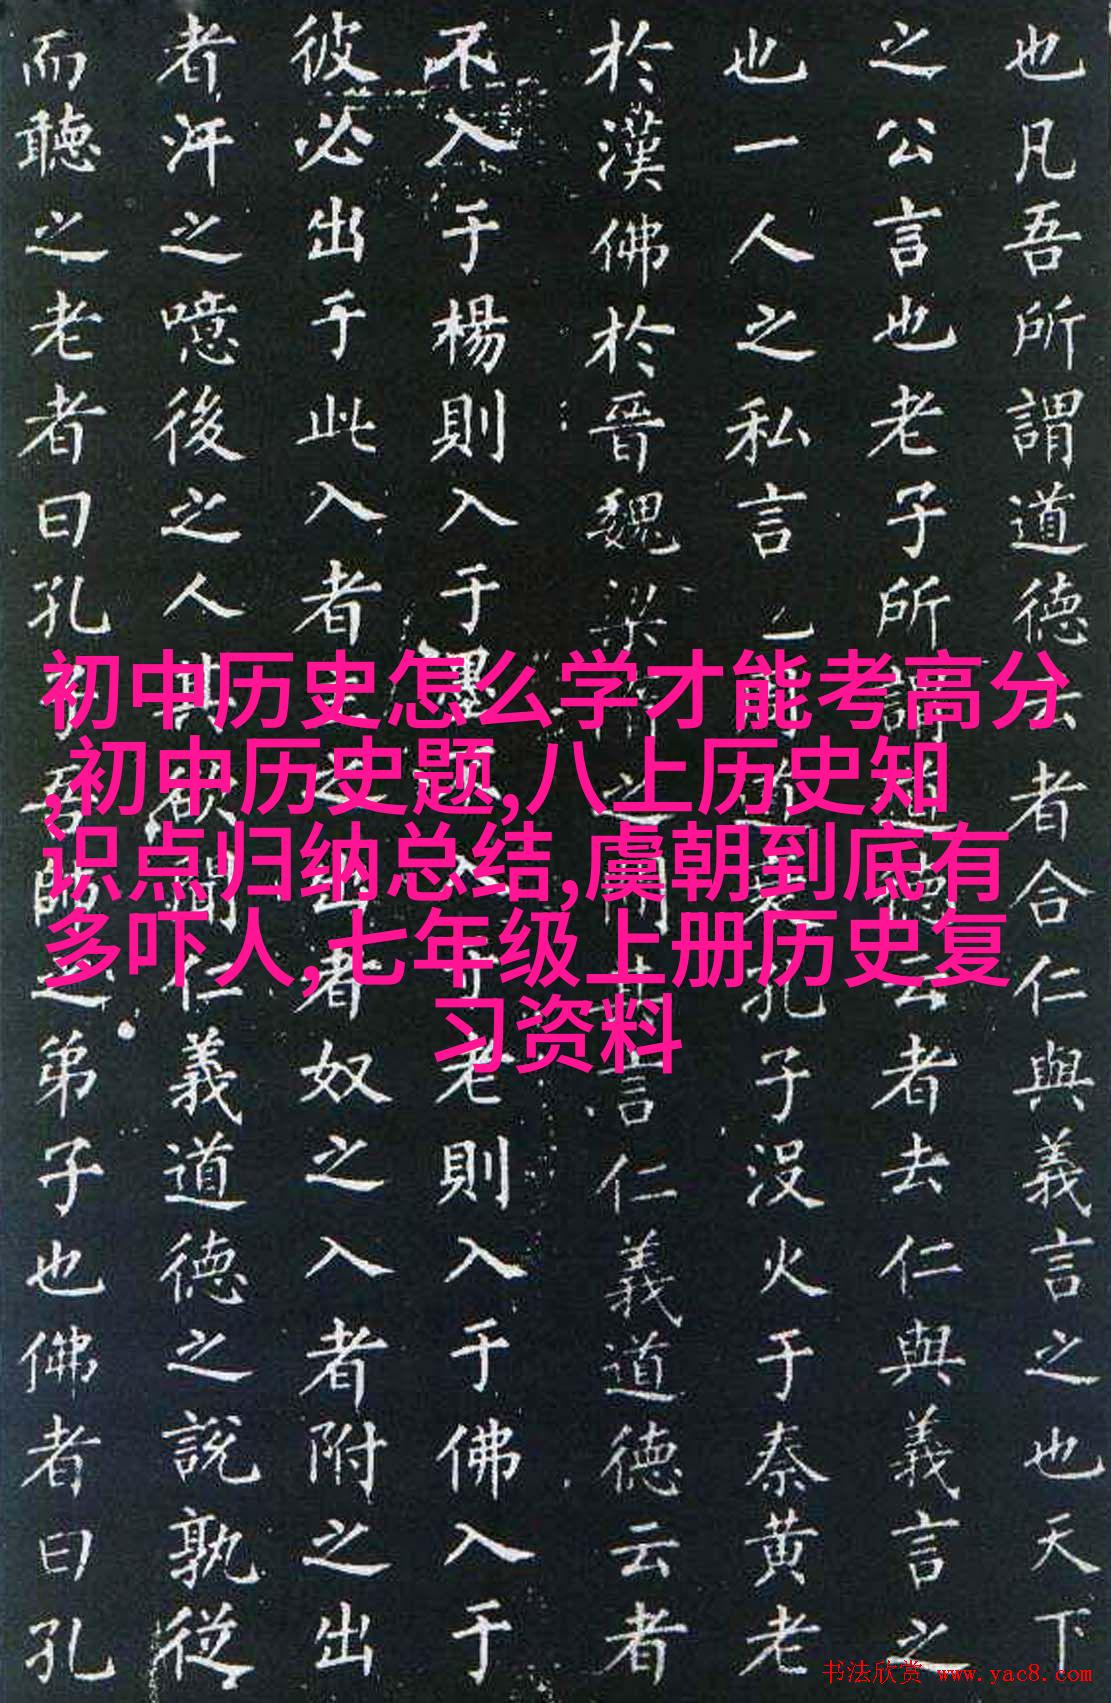 也凡吾所謂道德云者合仁與義言之也天下
之公言也老子所謂道德云者去仁與義言之
也一人之私言道孔子没火于秦黄老
於漢佛於晉魏梁之間其言仁義道德云者
不入于楊則入于墨于老則入于佛入于
彼必出于此入者之出者奴之入者附之出
者汙之噫後之人其欲聞仁義道德之説孰從
而聽之老者曰孔子吾師之弟子也佛者曰孔
初中历史怎么学才能考高分
,初中历史题,八上历史知
识点归纳总结,虞朝到底有
多吓人,七年级上册历史复
习资料
书法欣赏 www.yac8.com